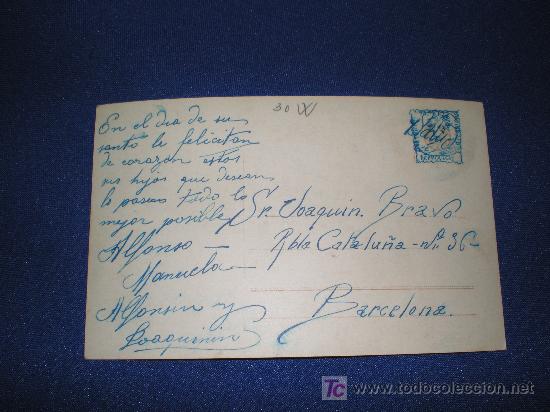 30 IX
En el dia de su
santo le felicitan
de corazón estos
sus hijos que desean
lo paseis todo lo
mejor posible
Alfonso —
Manuela —
Alfonsin y
Joaquinin
Sr. Joaquin Bravo
Rbla Cataluña - nº 36
Barcelona.
TC www.todocoleccion.net